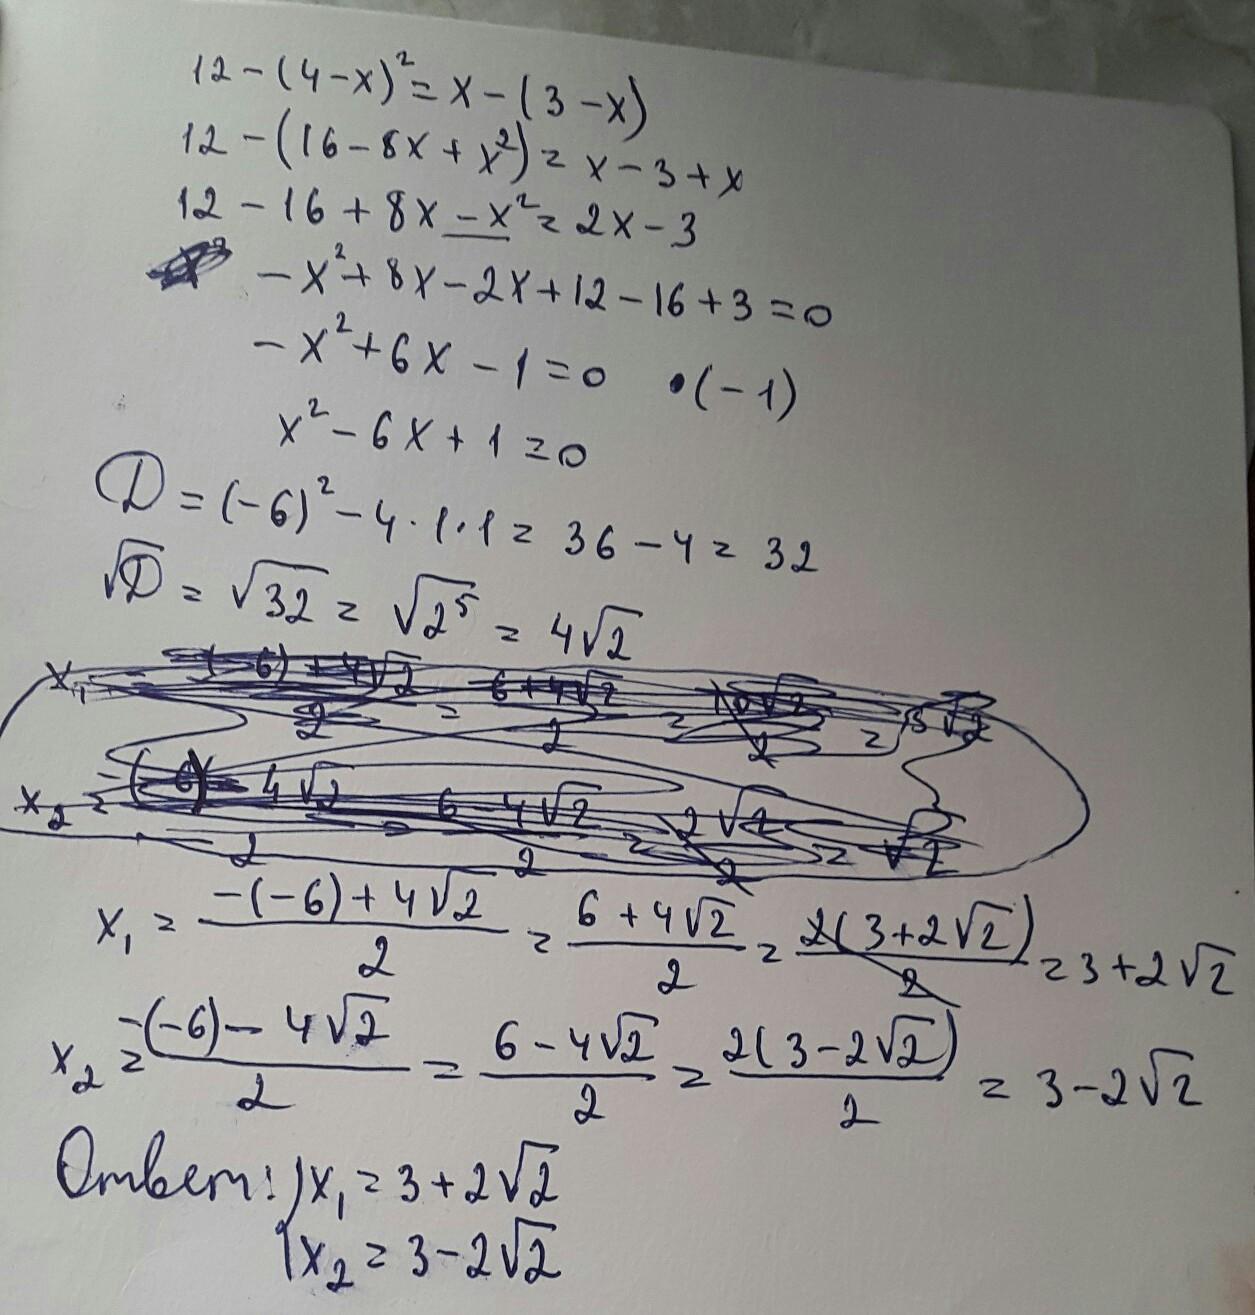 12-(4-x)²=x-(3-x)
12-(16-8x+x²)=x-3+x
12-16+8x-x²=2x-3
-x²+8x-2x+12-16+3=0
-x²+6x-1=0 •(-1)
x²-6x+1=0
D=(-6)²-4·1·1=36-4=32
√D=√32=√2⁵=4√2
x₁=(-(-6)+4√2)/2=(6+4√2)/2=2(3+2√2)/2=3+2√2
x₂=(-(-6)-4√2)/2=(6-4√2)/2=2(3-2√2)/2=3-2√2
Ответ: x₁=3+2√2
x₂=3-2√2